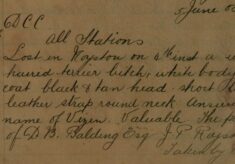 5 June 0
G DCC
All Stations
Lost in Royston on inst a
haired terrier bitch, white body
coat black & tan head short
leather strap round neck Answers
name of Vixen. Valuable The p
of D.B. Balding Esq J.P. Roys
Taken by